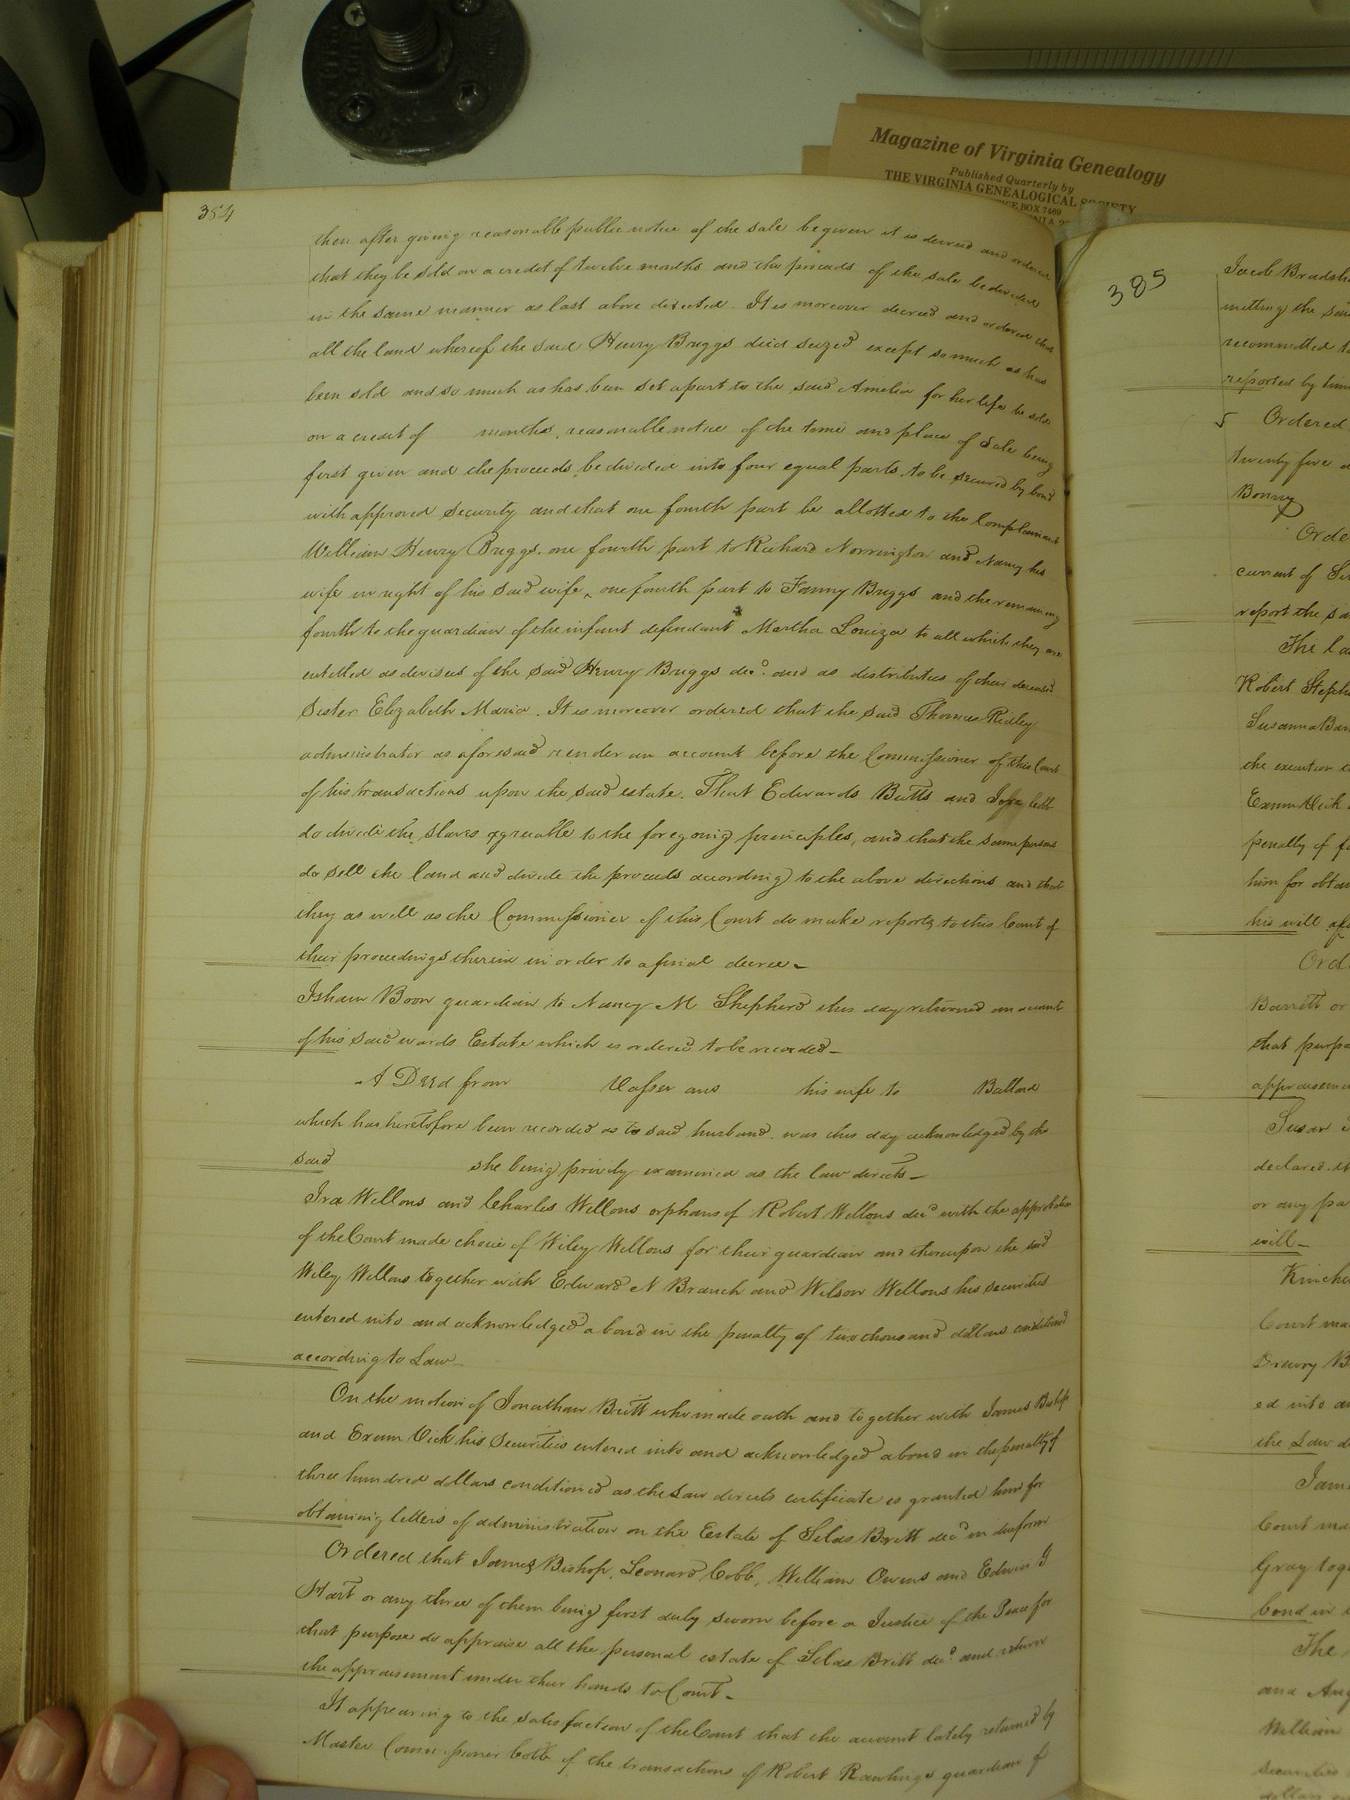 Magazine of Virginia Genealogy
Published Quarterly by
THE VIRGINIA GENEALOGICAL SOCIETY
BOX 7469
384
then after giving reasonable public notice of the sale be given it is decreed and ordered
that they be sold on a credit of twelve months and the proceeds of the sale be divided
in the same manner as last above directed. It is moreover decreed and ordered that
all the land whereof the said Henry Briggs died seized except so much as has
been sold and so much as has been set apart to the said Amelia for her life be sold
on a credit of months, reasonable notice of the time and place of Sale being
first given and the proceeds be divided into four equal parts, to be secured by bond
with approved Security and that one fourth part be allotted to the Complainant
William Henry Briggs, one fourth part to Richard Norrington and Nancy his
wife in right of his said wife, one fourth part to Fanny Briggs and the remaining
fourth to the guardian of the infant defendant Martha Louiza to all which they are
entitled as devisees of the said Henry Briggs decd. and as distributees of their deceased
Sister Elizabeth Maria. It is moreover ordered that the said Thomas Ridley
administrator as aforesaid render an account before the Commissioner of this Court
of his transactions upon the said estate. That Edwards Butts and
do divide the slaves agreeable to the foregoing principles, and that the same persons
do sell the land and divide the proceeds according to the above directions and that
they as well as the Commissioner of this Court do make reports to this Court of
their proceedings therein in order to a final decree
Isham Boon guardian to Nancy M Shepherd this day returned an account
of his said wards Estate which is ordered to be recorded
A Deed from Vasser and his wife to Ballard
which has heretofore been recorded as to said husband was this day acknowledged by the
said she being privily examined as the law directs
Ira Wellons and Charles Wellons orphans of Robert Wellons decd with the approbation
of the Court made choice of Wiley Wellons for their guardian and thereupon the said
Wiley Wellons together with Edward N Branch and Wilson Wellons his securities
entered into and acknowledged a bond in the penalty of two thousand dollars conditioned
according to Law
On the motion of Jonathan Britt who made oath and together with James Bishop
and Exum Vick his Securities entered into and acknowledged a bond in the penalty of
three hundred dollars conditioned as the Law directs certificate is granted him for
obtaining letters of administration on the Estate of Silas Britt decd in due form
Ordered that James Bishop, Leonard Cobb, William Owens and Edwin G
Hart or any three of them being first duly sworn before a Justice of the Peace for
that purpose do appraise all the personal estate of Silas Britt decd. and return
the appraisement under their hands to Court
It appearing to the satisfaction of the Court that the account lately returned by
Master Commissioner Cobb of the transactions of Robert Rawlings guardian of
385
Jacob
mitting the
recommitted
reported by
Ordered
twenty five
Bonny
current of
report the
The
Robert
Susanna
the executor
Exum Vick
penalty of
him for
his will
Barrett or
that
Susan
declared
or any
will
Court
Drewry
ed into
the Law
Court
Gray
bond in
The
and
William